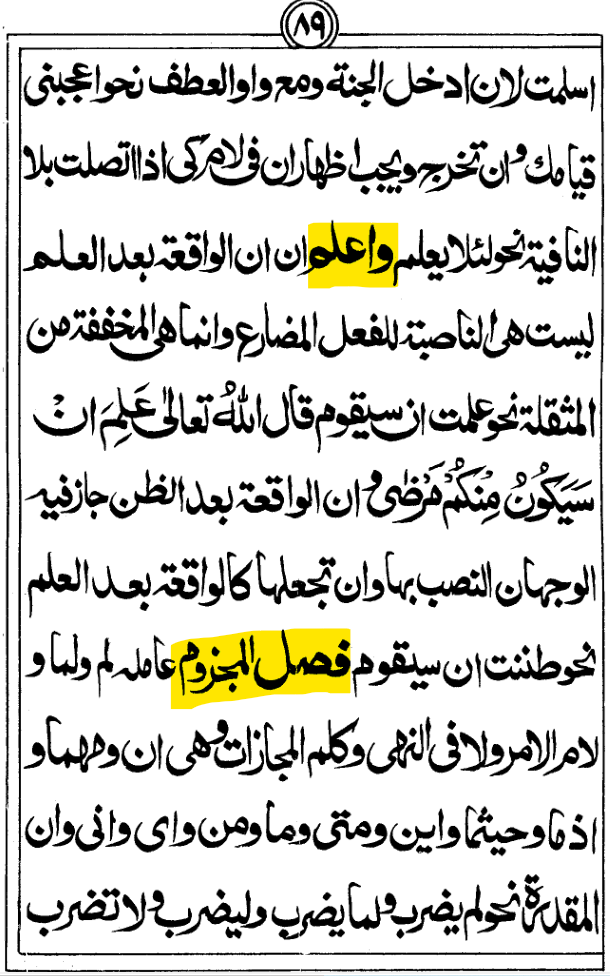 ٨٩
اسلمت لان ادخل الجنة ومع واو العطف نحو اعجبنى
قيامك وان تخرج ويجب اظهار ان فى لام كى اذا اتصلت بلا
النافية نحو لئلا يعلم واعلم ان ان الواقعة بعد العلم
ليست هى الناصبة للفعل المضارع وانما هى المخففة من
المثقلة نحو علمت ان سيقوم قال اللهُ تعالىٰ عَلِمَ انْ
سَيَكُونُ مِنْكُمْ مَرْضٰى وان الواقعة بعد الظن جاز فيه
الوجهان النصب بها وان تجعلها كالواقعة بعد العلم
نحو ظننت ان سيقوم فصل المجزوم عامله لم ولما و
لام الامر ولا فى النهى وكلم المجازات وهى ان ومهما و
اذما وحيثما واين ومتى وما ومن واى وانى وان
المقدرة نحو لم يضرب ولما يضرب وليضرب ولا تضرب